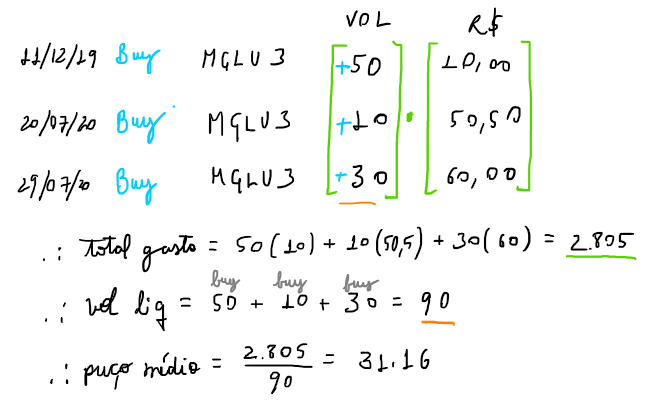 VOL R$
11/12/19 Buy MGLU3 +50 10,00
20/07/20 Buy MGLU3 +10 • 50,50
29/07/20 Buy MGLU3 +30 60,00
∴ total gasto = 50(10) + 10(50,5) + 30(60) = 2.805
buy buy buy
∴ vol liq = 50 + 10 + 30 = 90
∴ preço médio = 2.805/90 = 31.16